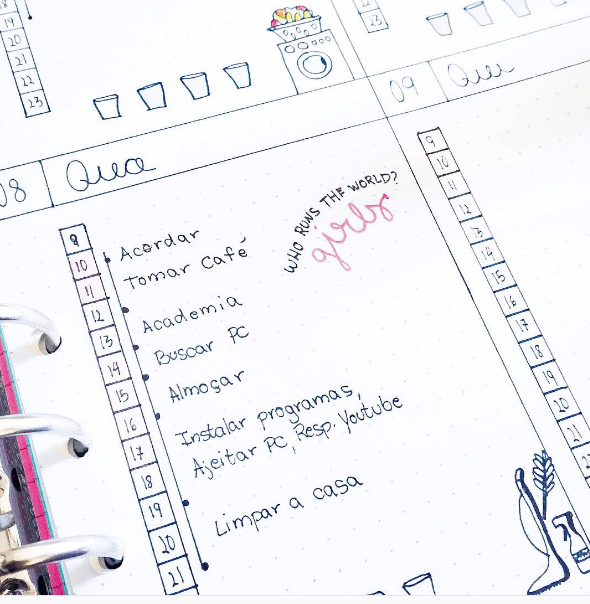 18
19
20
21
22
23
23
08
Qua
09
Qui
9
10
11
12
13
14
15
16
17
18
19
20
21
Acordar
Tomar Café
Academia
Buscar PC
Almoçar
Instalar programas,
Ajeitar PC, Resp. Youtube
Limpar a casa
WHO RUNS THE WORLD?
girls
9
10
11
12
13
14
15
16
17
18
19
20
21